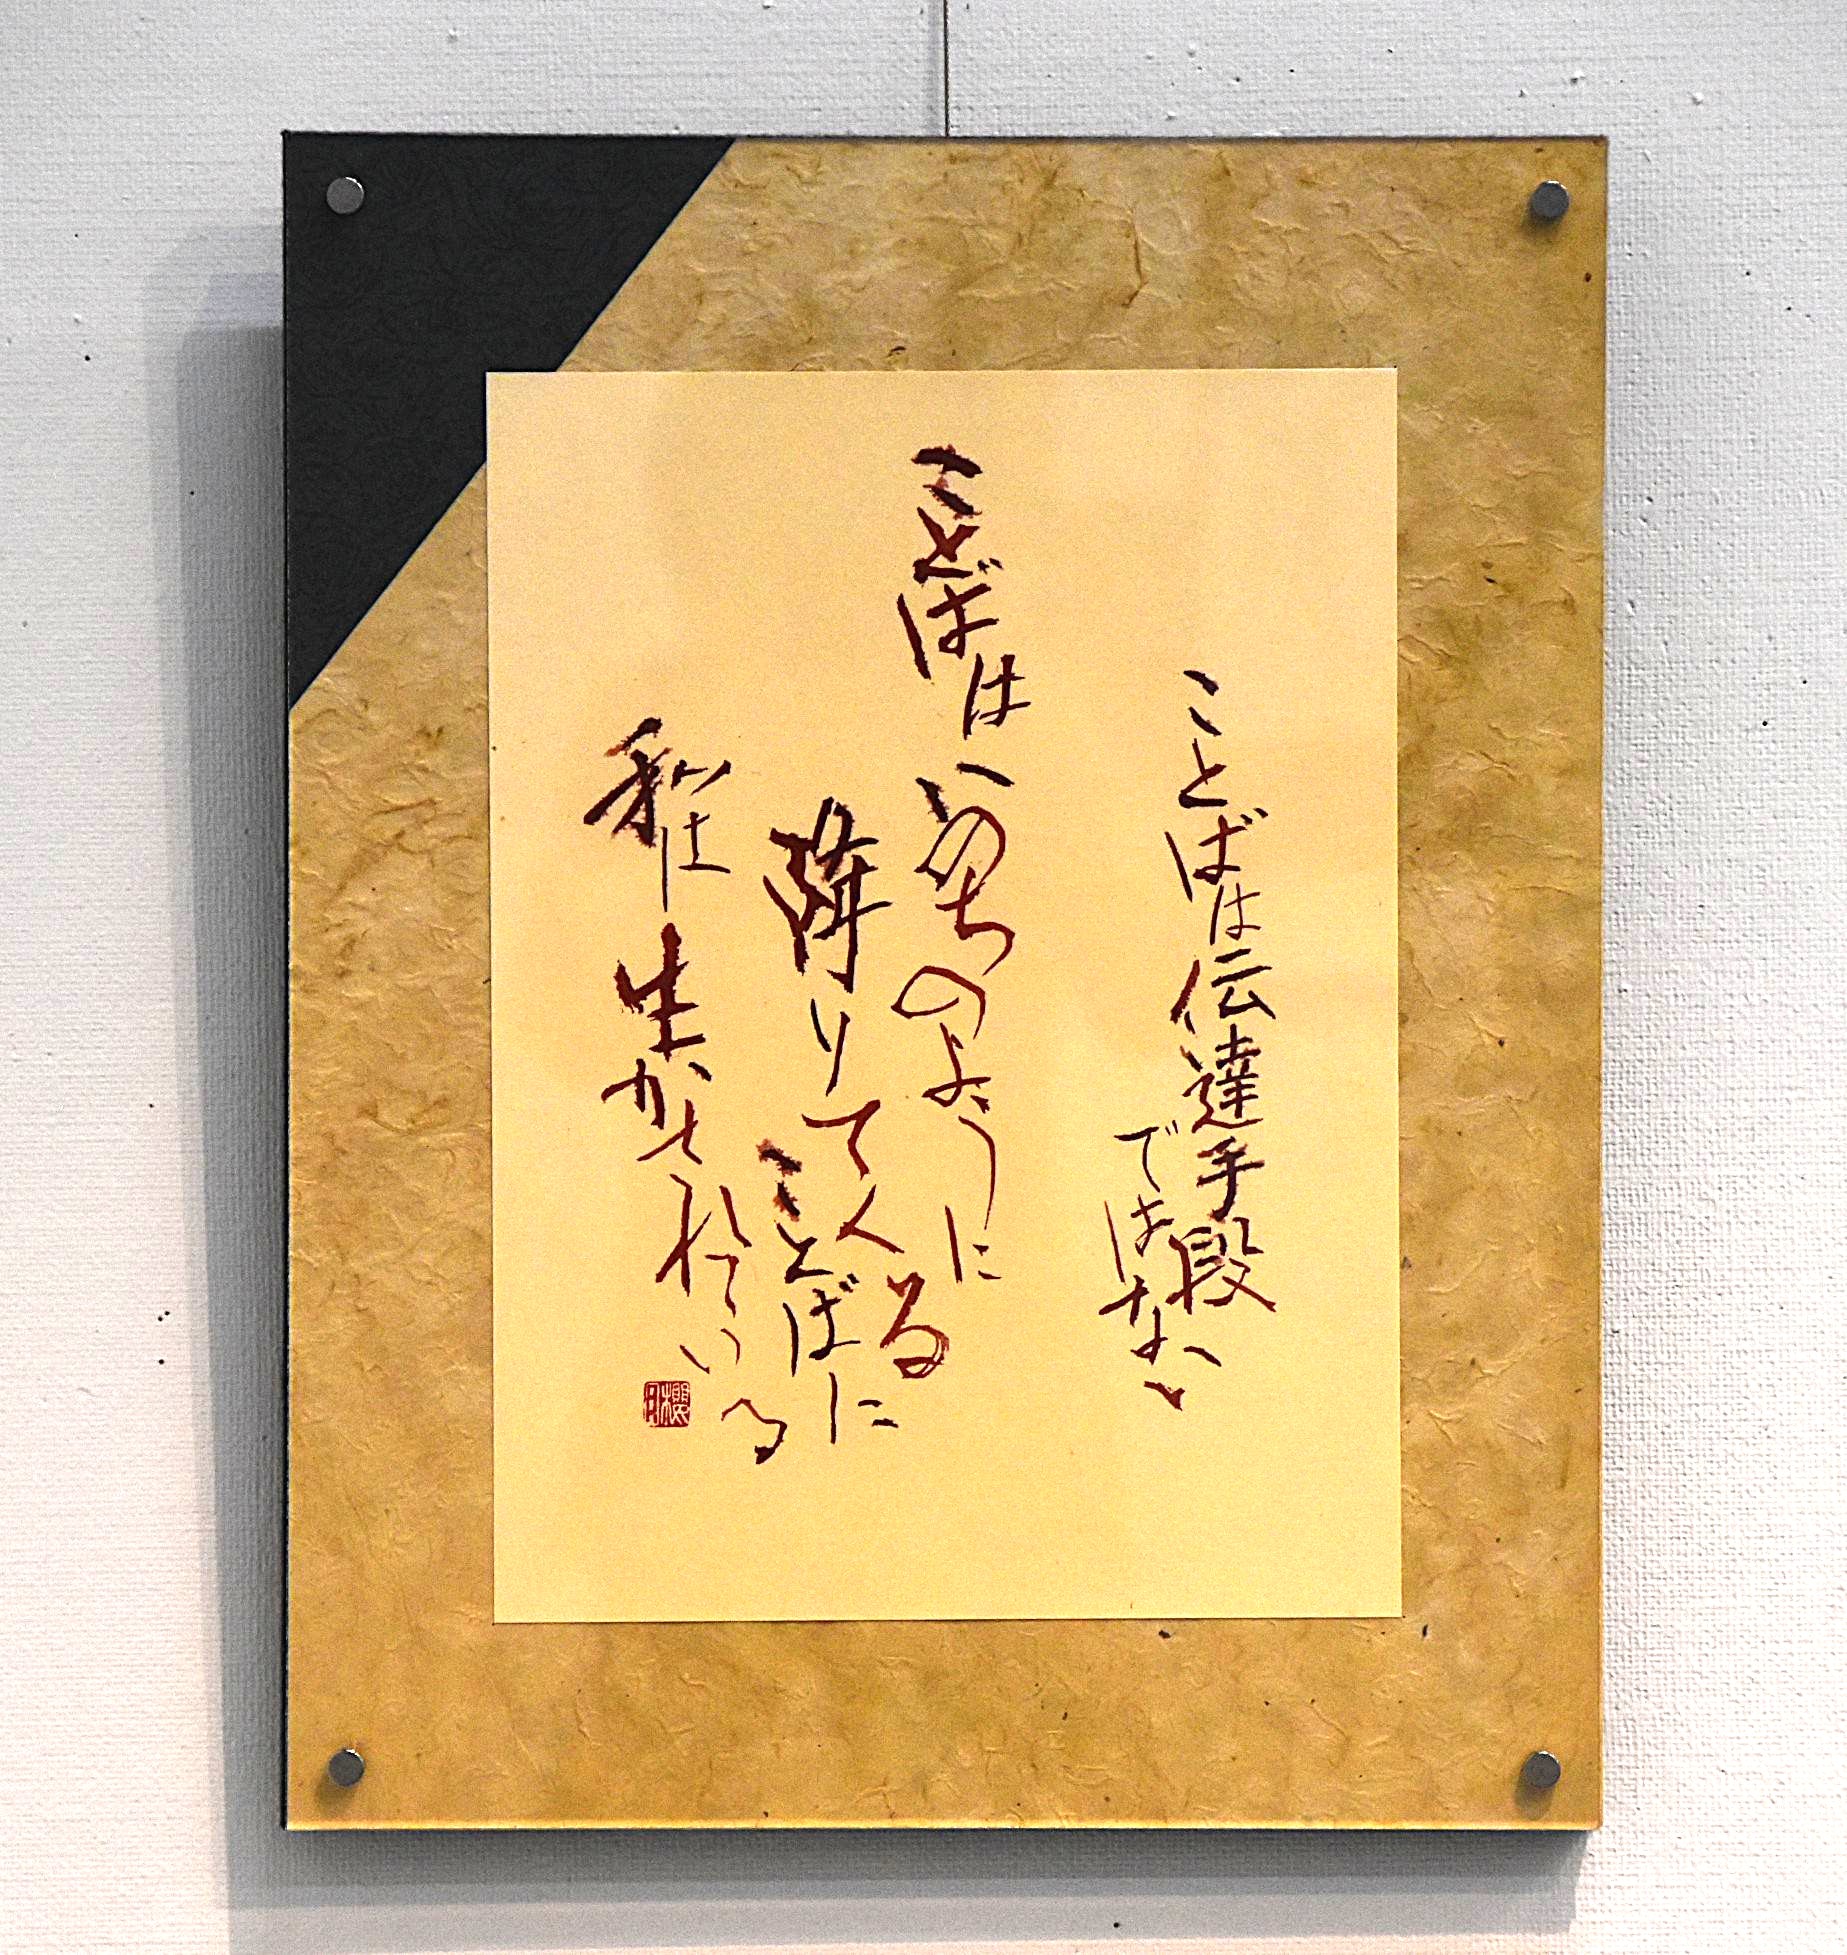 ことばは伝達手段
ではない
ことばはいのちのように
降りてくる
ことばに
私は生かされている
櫻